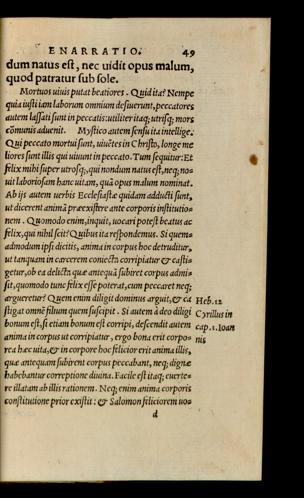 ENARRATIO. 49
dum natus est, nec uidit opus malum,
quod patratur sub sole.
Mortuos uiuis putat beatiores. Quid ita? Nempe
quia iusti iam laborum omnium desuerunt, peccatores
autem lassati sunt in peccatis: utiliter itaq; utrisq; mors
cōmunis aduenit. Mystico autem sensu ita intellige.
Qui peccato mortui sunt, uiuētes in Christo, longe me
liores sunt illis qui uiuunt in peccato. Tum sequitur: Et
felix mihi super utrosq;, qui nondum natus est, neq; no-
uit laboriosam hanc uitam, quā opus malum nominat.
Ab ijs autem uerbis Ecclesiastæ quidam adducti sunt,
ut dicerent animā præexistere ante corporis institutio-
nem. Quomodo enim, inquit, uocari potest beatus ac
felix, qui nihil scit? Quibus ita respondemus. Si quem-
admodum ipsi dicitis, anima in corpus hoc detruditur,
ut tanquam in carcerem coniecta corripiatur & casti-
getur, ob ea delicta quæ antequā subiret corpus admi-
sit, quomodo tunc felix esse poterat, cum peccaret neq;
argueretur? Quem enim diligit dominus arguit, & ca
stigat omnē filium quem suscipit. Si autem à deo diligi
bonum est, si etiam bonum est corripi, descendit autem
anima in corpus ut corripiatur, ergo bona erit corpo-
rea hæc uita, & in corpore hoc felicior erit anima illis,
quæ antequam subirent corpus peccabant, neq; dignæ
habebantur correptione diuina. Facile est itaq; euerte-
re illatam ab illis rationem. Neq; enim anima corporis
constitutione prior existit: & Salomon feliciorem uo-
d
Heb. 12
Cyrillus in
cap. 1. Ioan
nis